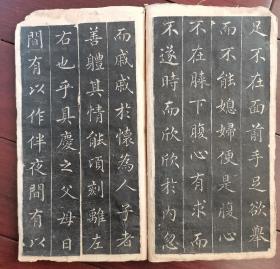 足不在面前手足欲舉
而不能媳婦便是腹心
不在膝下腹心有求而
不遂時而欣欣於內忽
而戚戚於懷為人子者
善體其情能頃刻離左
右也乎具慶之父母日
間有以作伴夜間有以